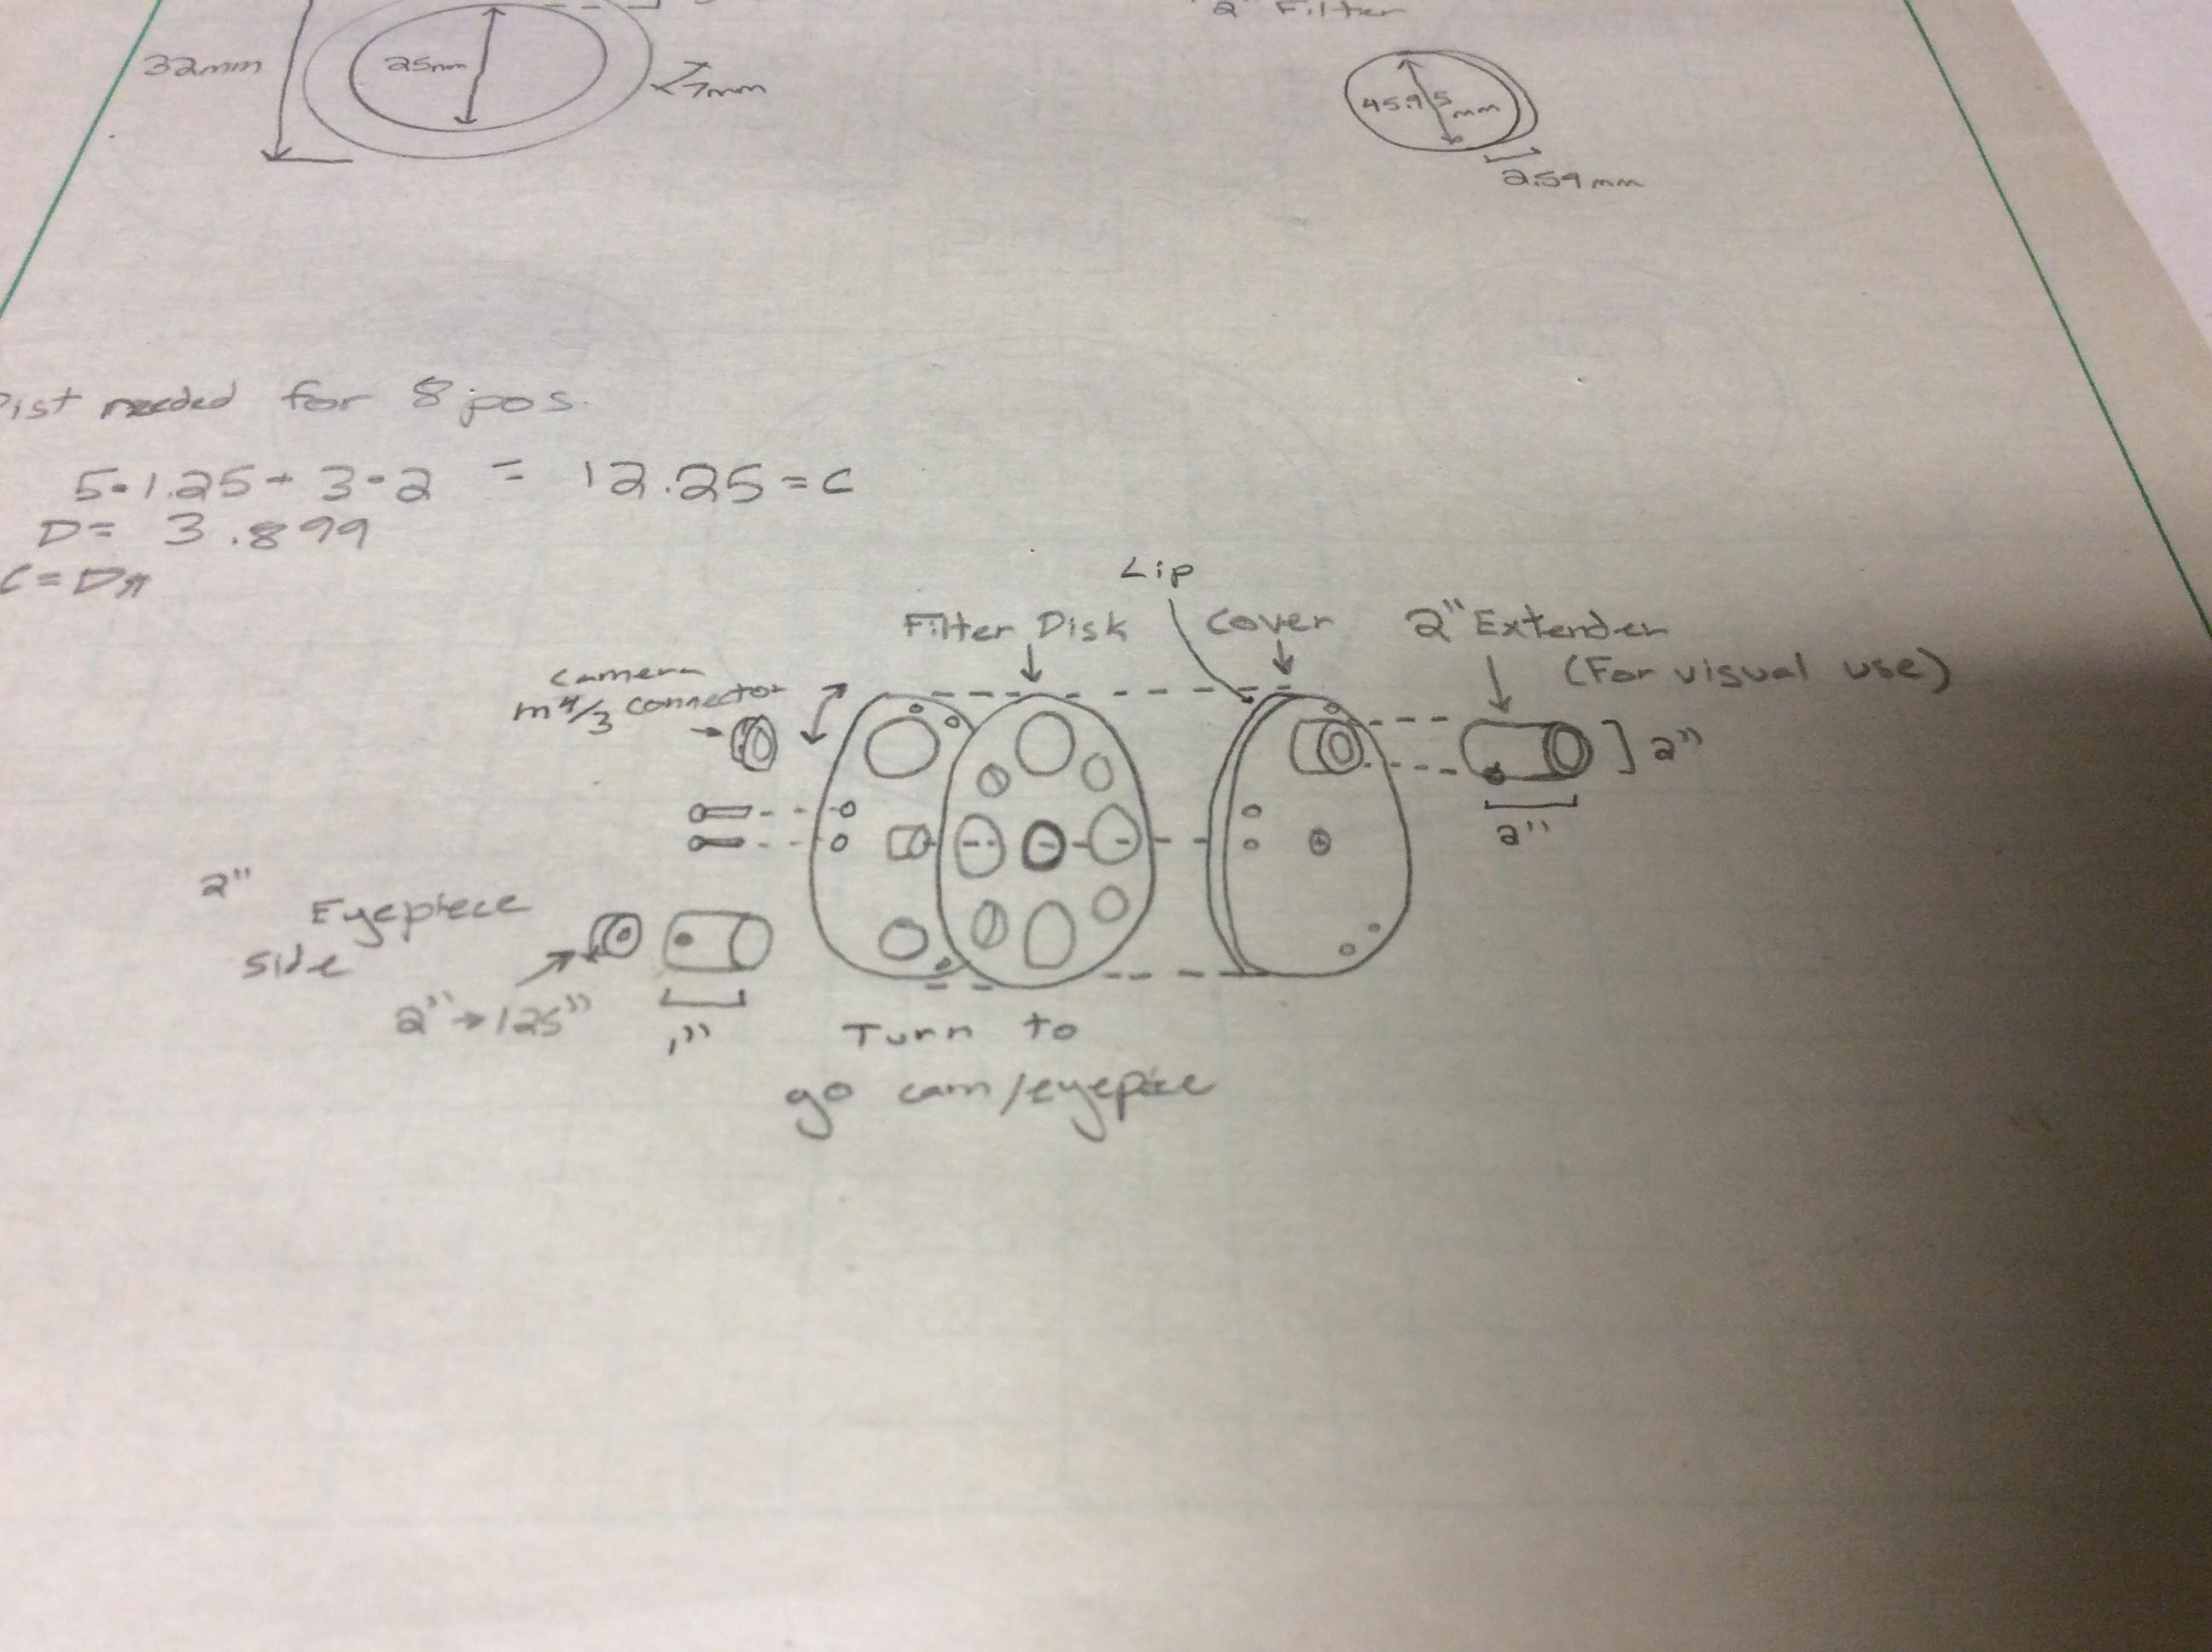 2" Filter
32mm
25mm
7mm
45.95
mm
2.59mm
Dist needed for 8 pos.
5•1.25+ 3•2 = 12.25=C
D= 3.899
C=Dπ
Lip
Filter Disk
Cover
2" Extender
(For visual use)
Camera
m4/3 connector
2"
2"
2"
Eyepiece
side
2"→125"
1"
Turn to
go cam/eyepiece